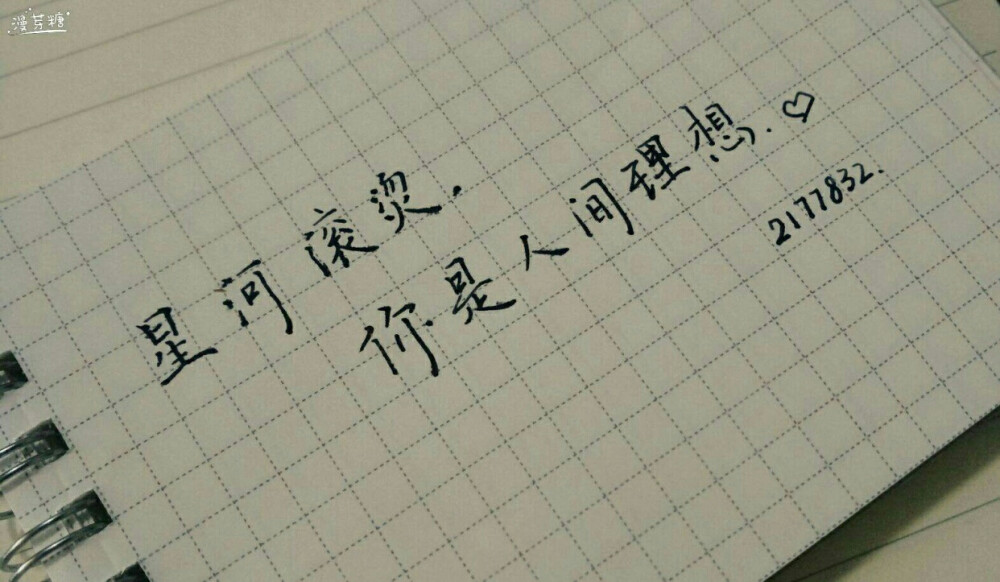 漫芽糖
星河滚烫.
你是人间理想.♡
2177832.